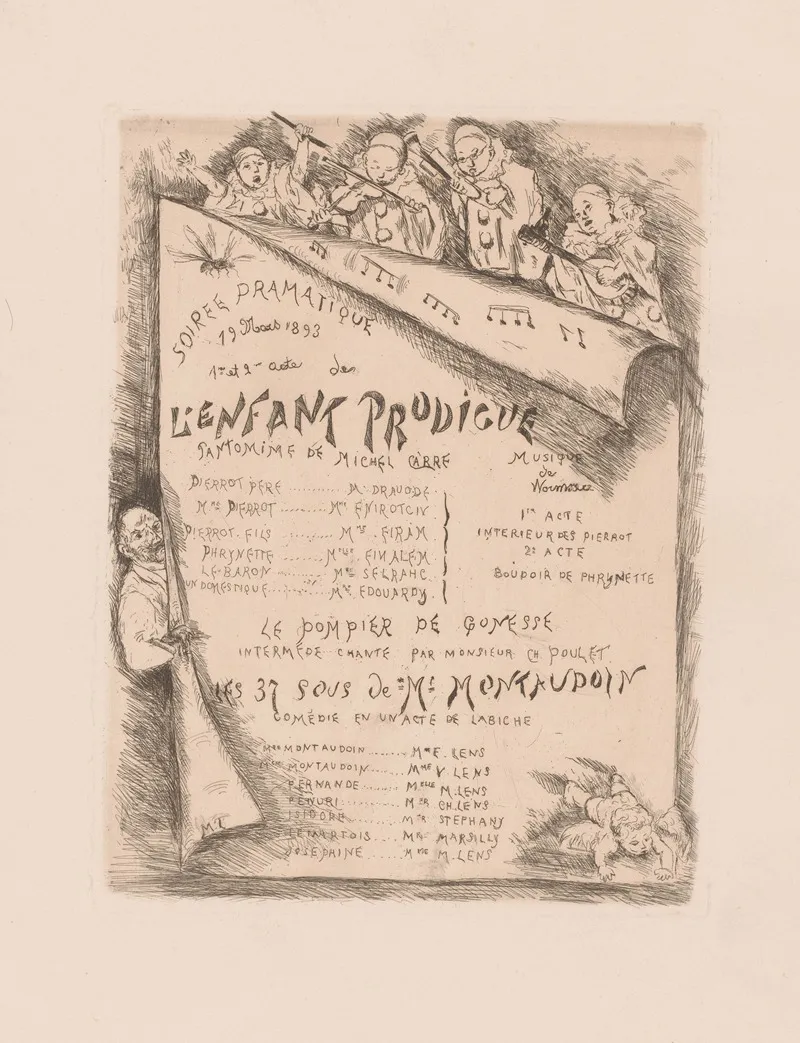 SOIRÉE DRAMATIQUE
19 Mars 1893
1er et 2me acte de
L'ENFANT PRODIGUE
PANTOMIME DE MICHEL CARRÉ
PIERROT PÈRE .......... Mr DRAUODE
Mme PIERROT ......... Mme ENIROTCIV
PIERROT FILS ......... Mlle EIRAM
PHRYNETTE ....... Mlle EINALEM
LE BARON ......... Mr SELRAHC
UN DOMESTIQUE ......... Mr EDOUARDY
MUSIQUE
de
Wormser
1er ACTE
INTERIEUR DES PIERROT
2e ACTE
BOUDOIR DE PHRYNETTE
LE POMPIER DE GONESSE
INTERMÈDE CHANTÉ PAR MONSIEUR CH POULET
LES 37 SOUS de Mr MONTAUDOIN
COMÉDIE EN UN ACTE DE LABICHE
MONTAUDOIN ........ E. LENS
Mme MONTAUDOIN ....... Mme V. LENS
FERNANDE ...... Melle M. LENS
PENURI ......... Mr CH. LENS
ISIDORE ......... Mr STEPHANY
LEMARTOIS ..... Mr MARSILLY
JOSEPHINE ..... Mme M. LENS
ML